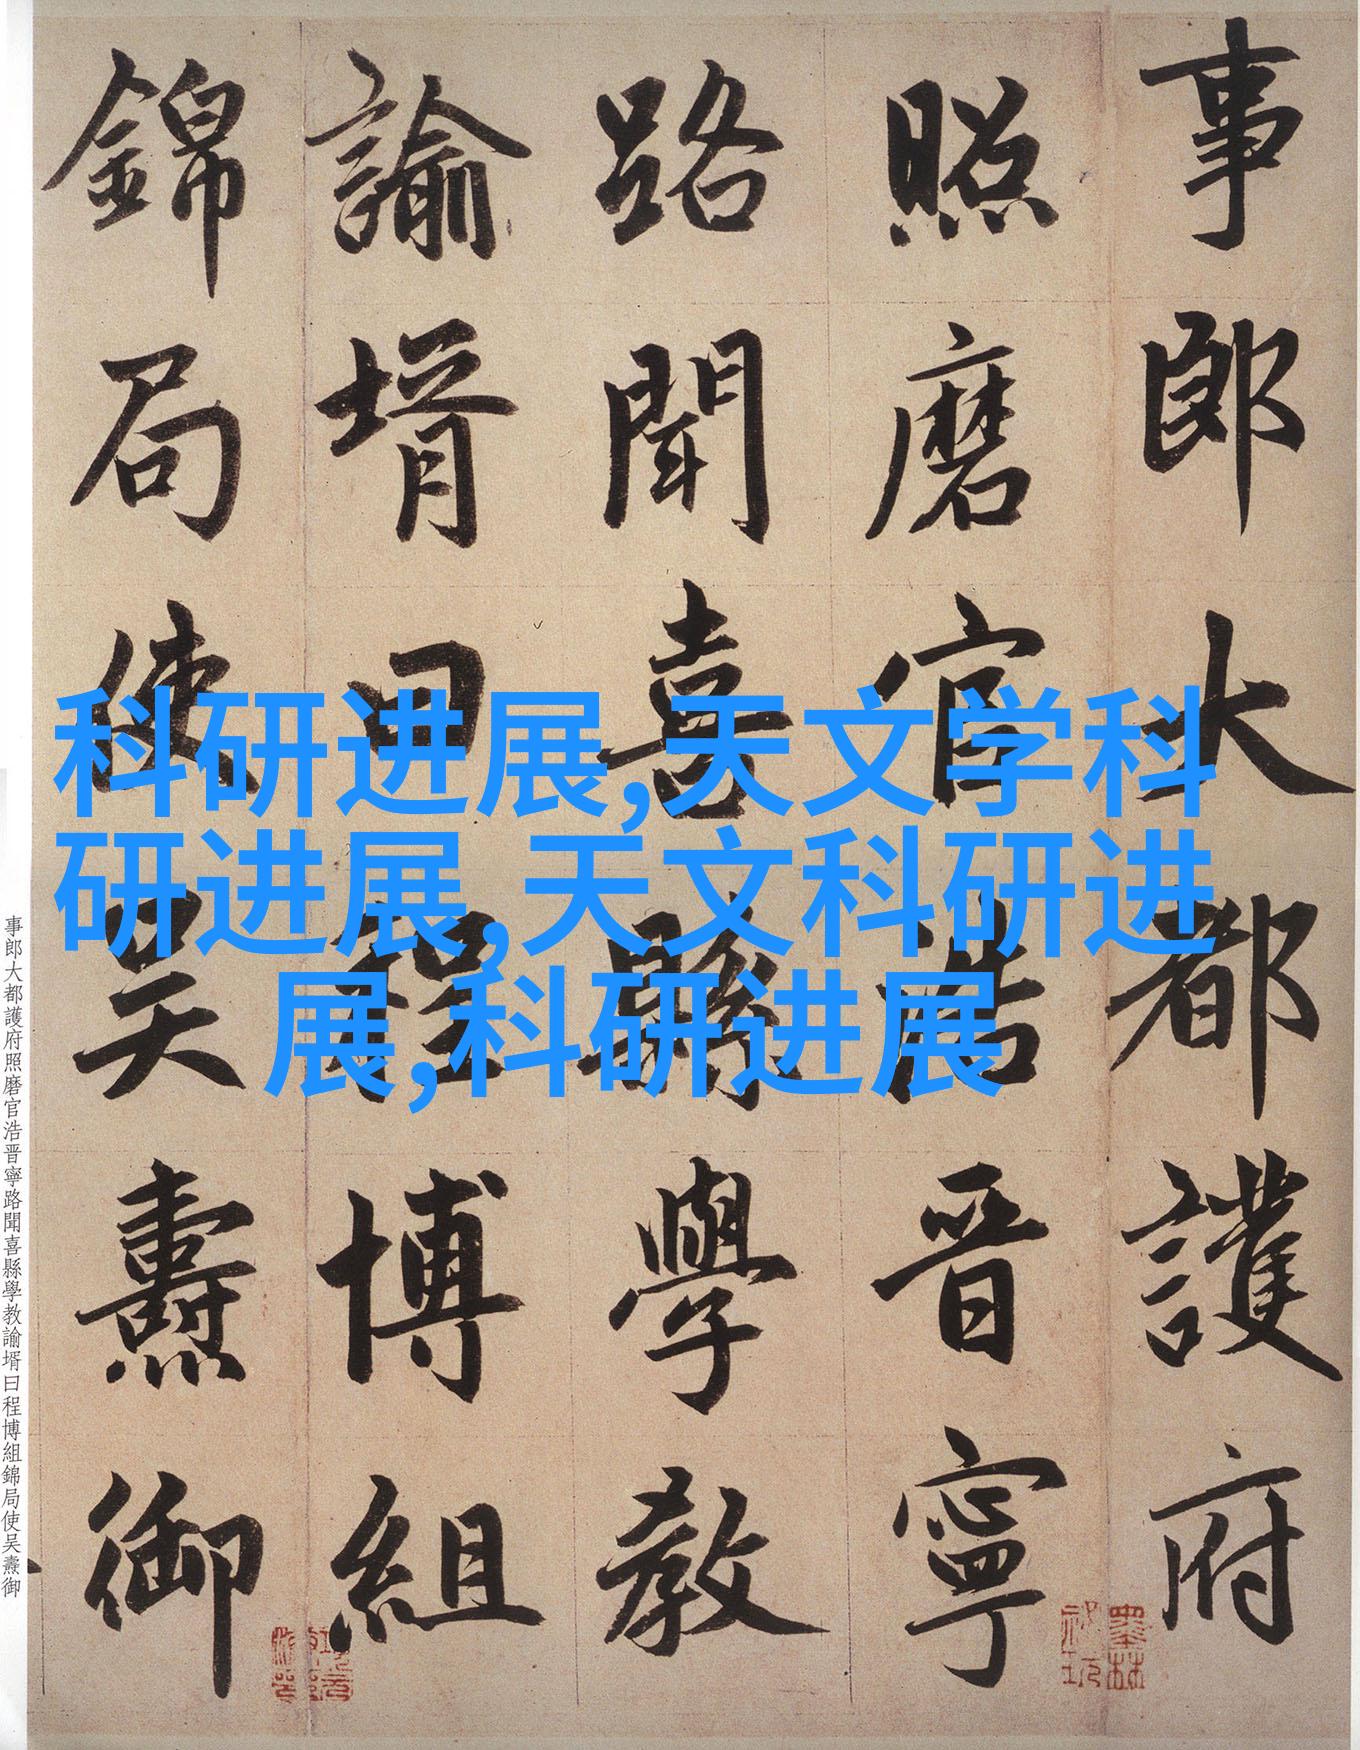 事郎大都護府
照磨官浩晋寧
路聞喜縣學教
諭壻曰程博組
錦局使吴燾御
科研进展,天文学科
研进展,天文科研进
展,科研进展
事郎大都護府照磨官浩晋寧路聞喜縣學教諭壻曰程博組錦局使吴燾御